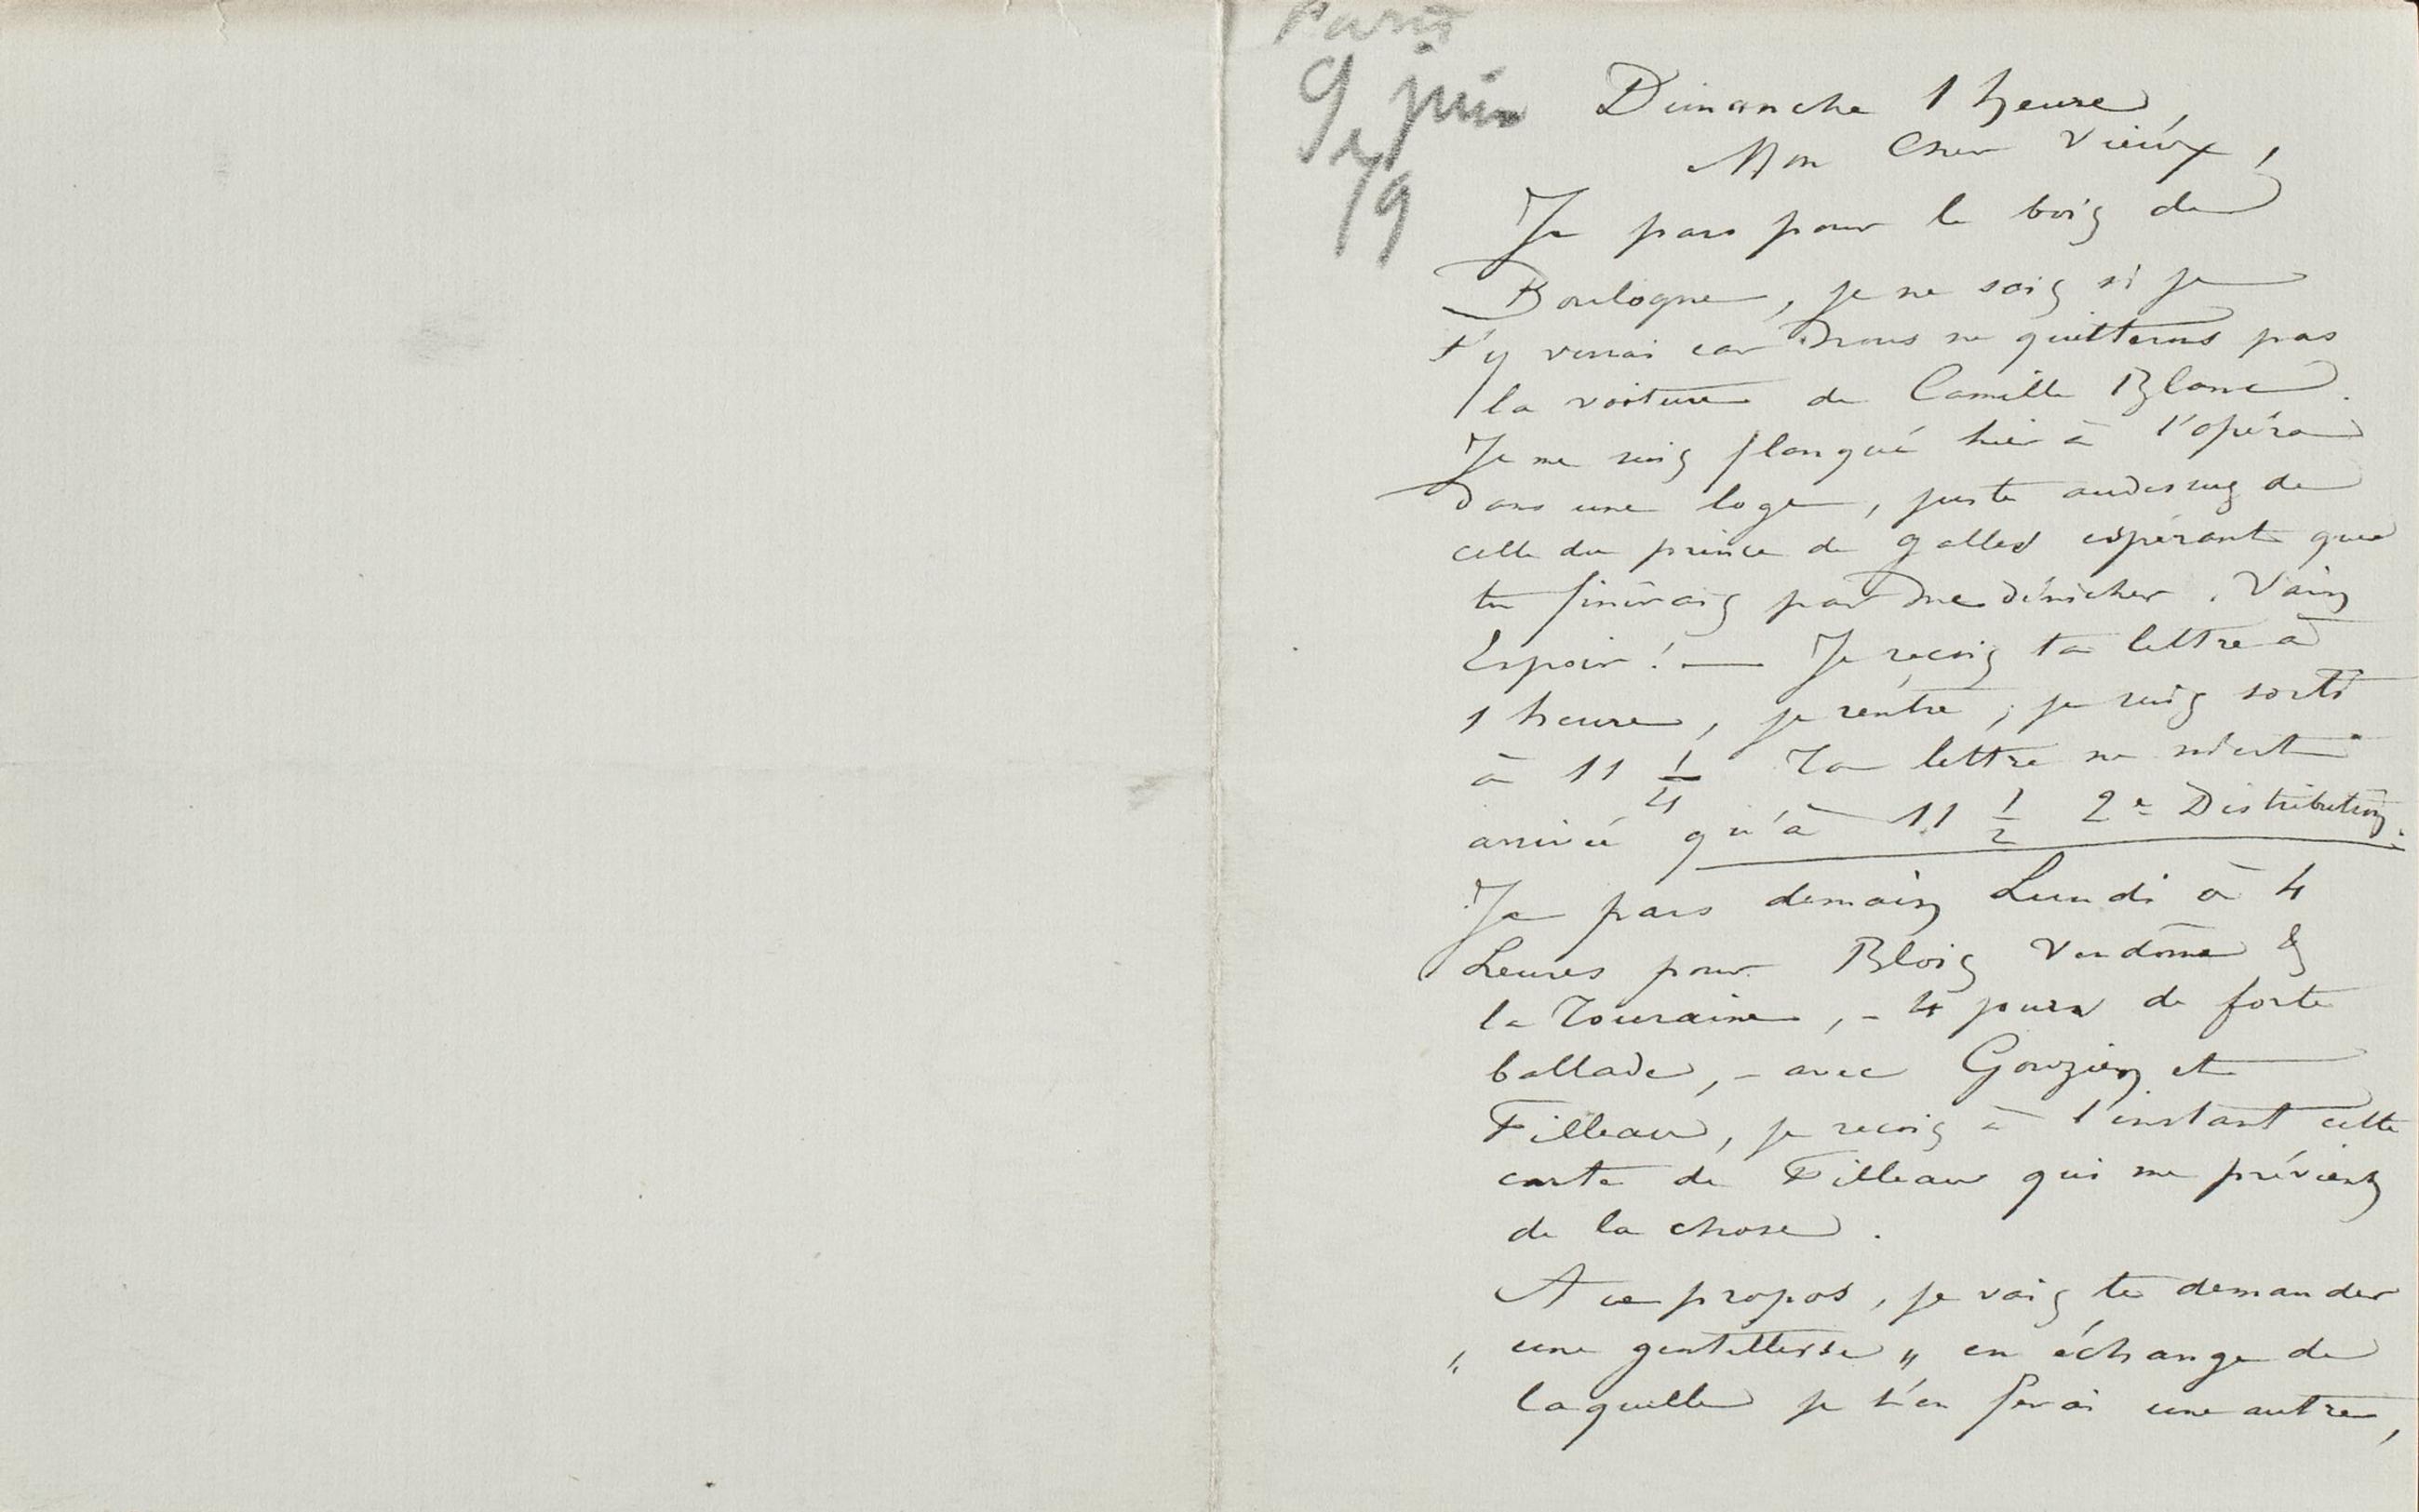 Paris
9 juin
79
Dimanche 1 heure
Mon Cher Vieux,
Je pars pour le bois de
Boulogne, je ne sais si je
t'y verrai car nous ne quitterons pas
la voiture de Camille Blanc.
Je me suis planqué hier à l'opéra
dans une loge, juste audessus de
celle du prince de galles espérant que
tu finirais par me dénicher. Vain
Espoir ! — Je reçois ta lettre à
1 heure, je rentre, je suis sorti
à 11 1/4 Ta lettre ne m'est
arrivée qu'à 11 1/2 2e Distribution.
Je pars demain Lundi à 4
heures pour Blois Vendôme &
la Touraine, - 4 jours de forte
ballade, - avec Gouzien et
Filleau, je reçois à l'instant cette
carte de Filleau qui me prévient
de la chose.
A ce propos, je vais te demander
" une gentillesse " en échange de
laquelle je t'en ferai une autre,